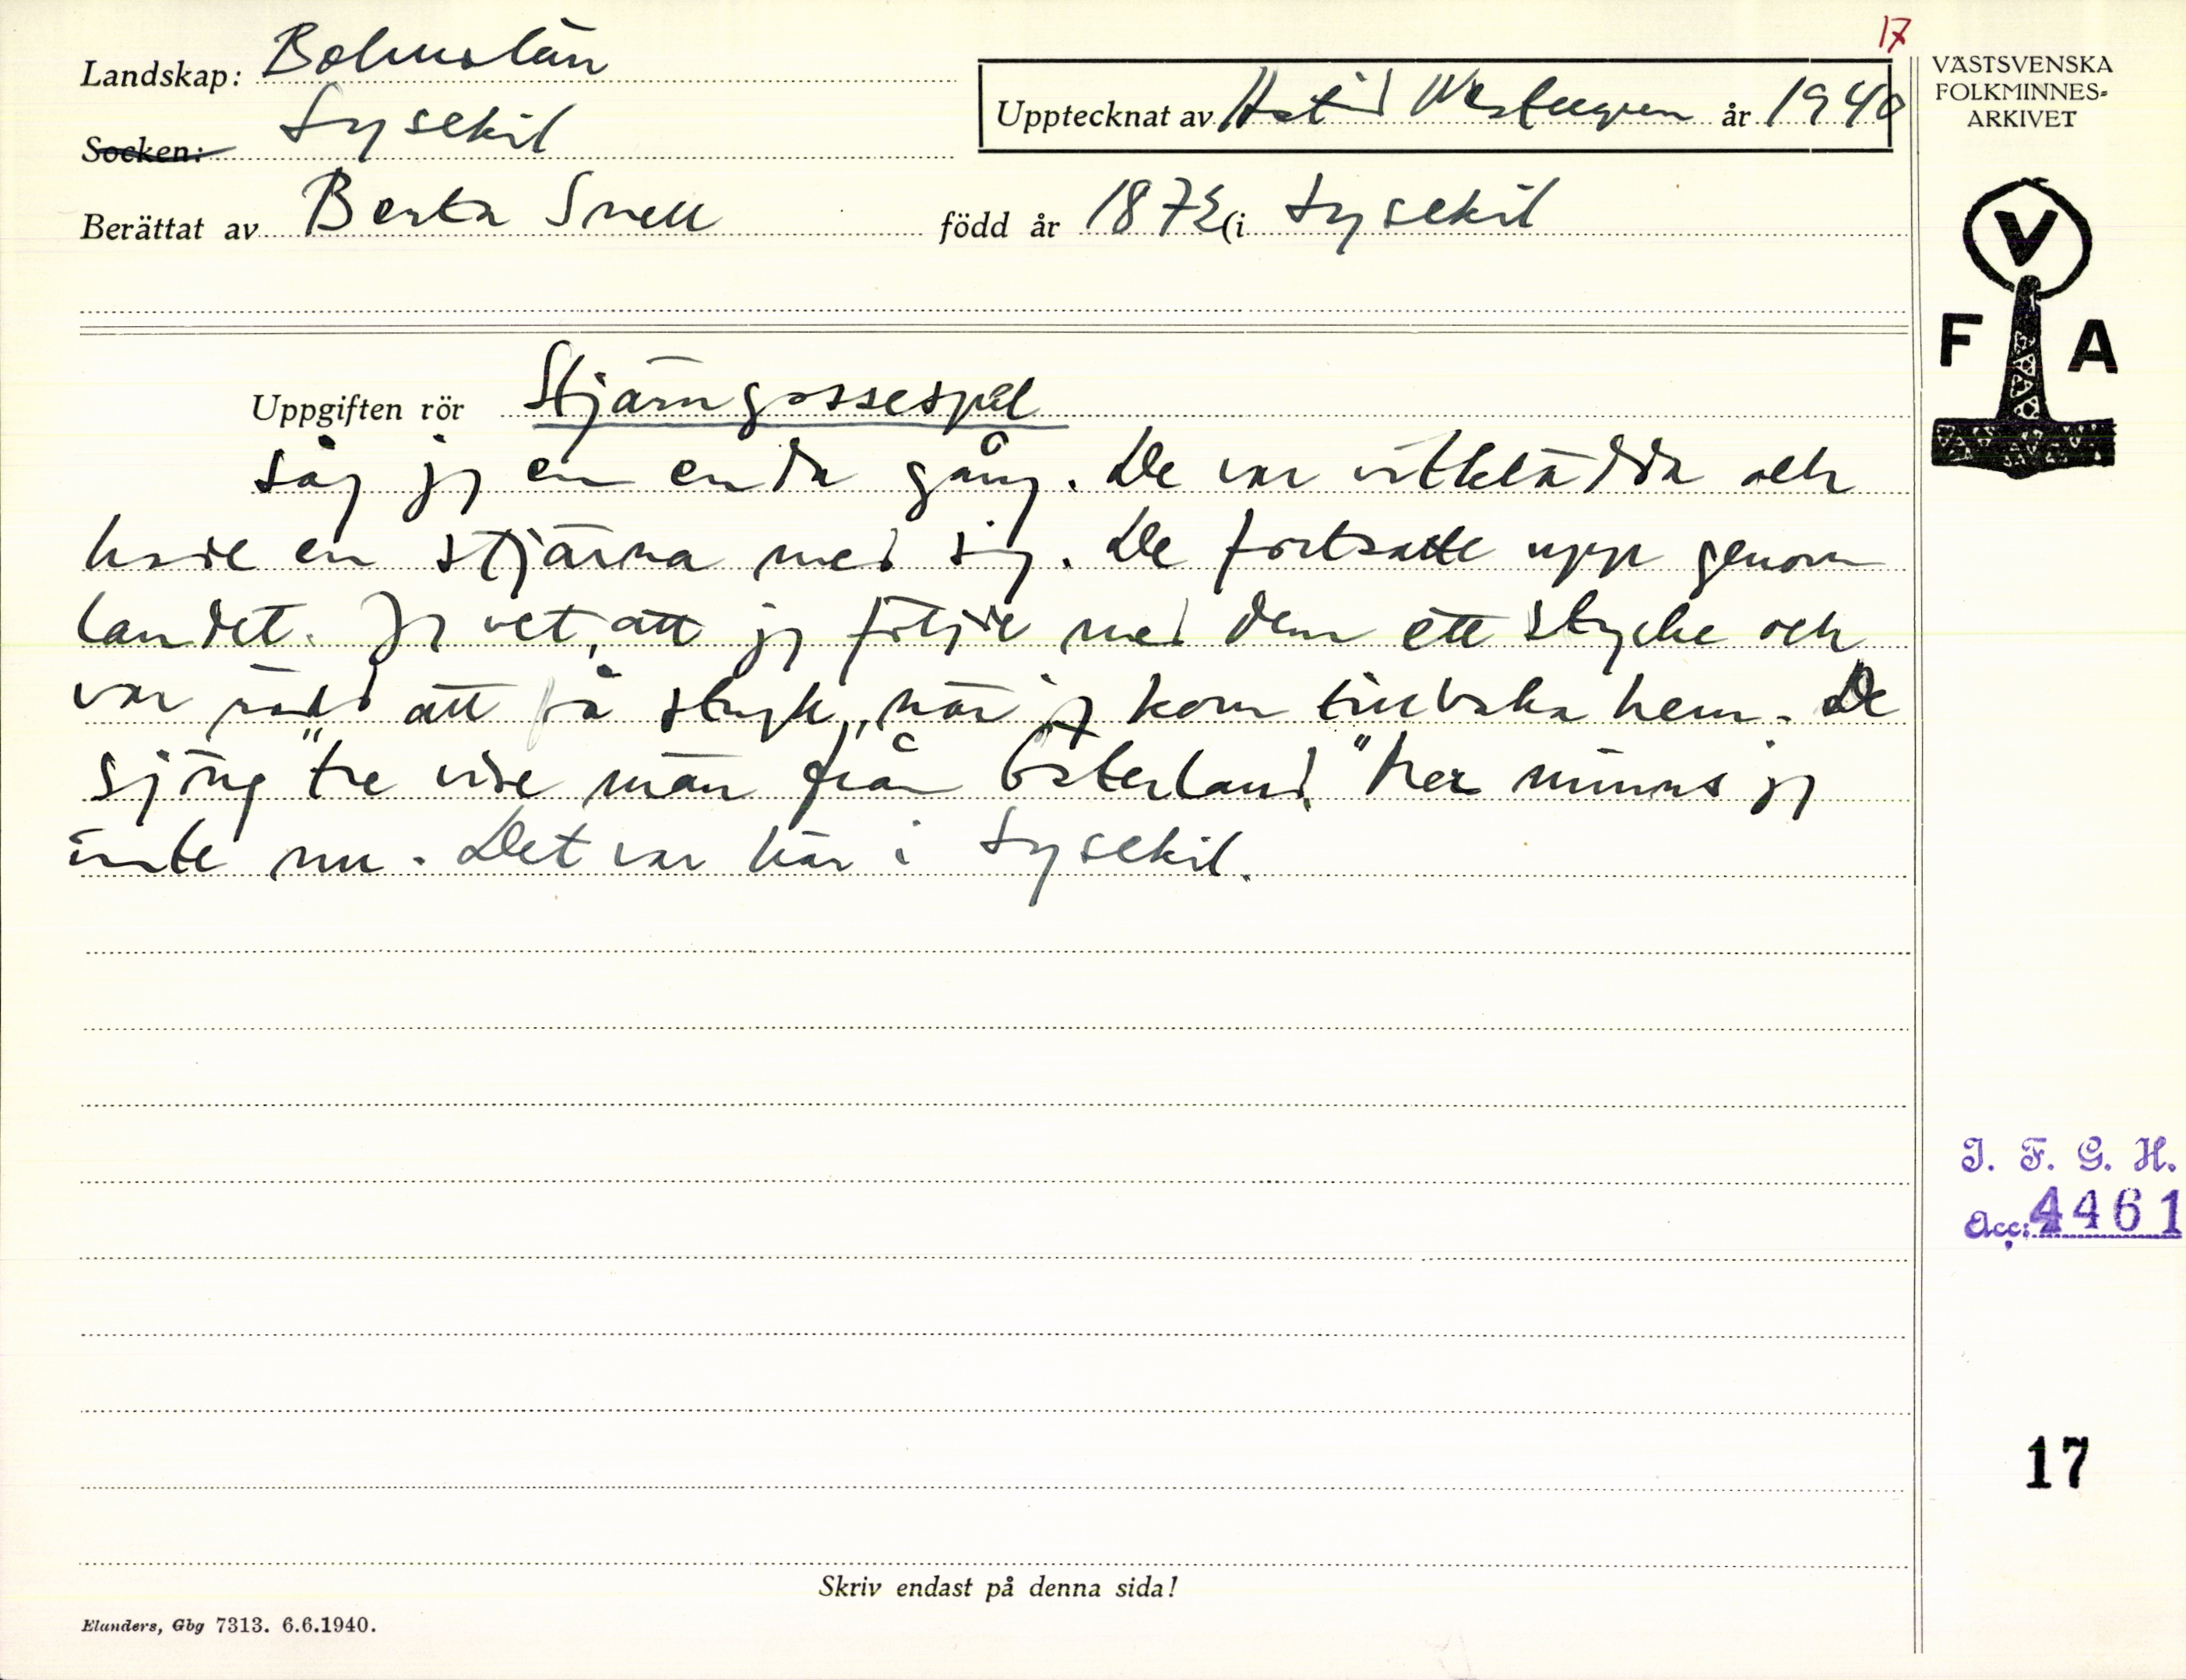 17
Landskap: Bohuslän
Socken: Lysekil
Upptecknat av Astrid Westergren år 1940
Berättat av Berta Snell född år 1872 i Lysekil
VÄSTSVENSKA
FOLKMINNES-
ARKIVET
V
F A
Uppgiften rör Stjärngossespel
såg jg en enda gång. De var vitklädda och
hade en stjärna med sig. De fortsatte upp genom
landet. Jg vet, att jg följde med dem ett stycke och
var rädd att få stryk, när jg kom tillbaka hem. De
sjöng "tre vise män från Österland." Mer minns jg
inte nu. Det var här i Lysekil.
I. F. G. H.
Acc: 4461
17
Skriv endast på denna sida!
Elanders, Gbg 7313. 6.6.1940.